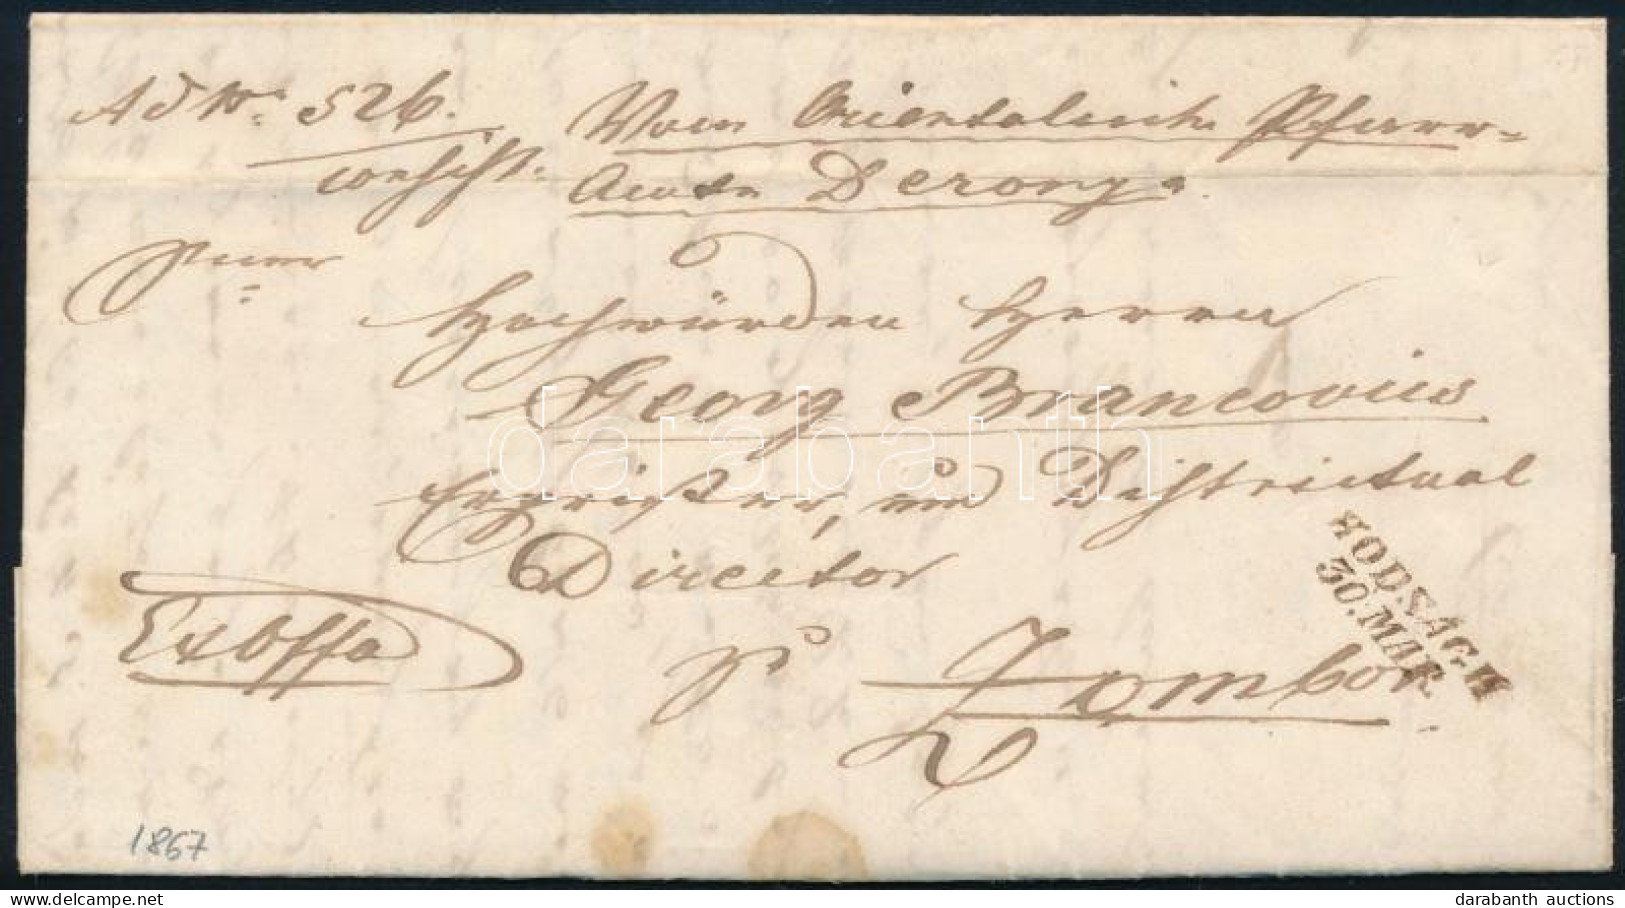 Ad No. 526.
consist.
Vom Orientalisch Pfarr=
Amte Derony.
Seiner
Hochwürden Herrn
Georg Brancovics
Erzpriester, und Districtual
Director
zu Zombor
Ex Offo
HODSÁGH
30. MAR.
1867
darabanth
darabanth auctions